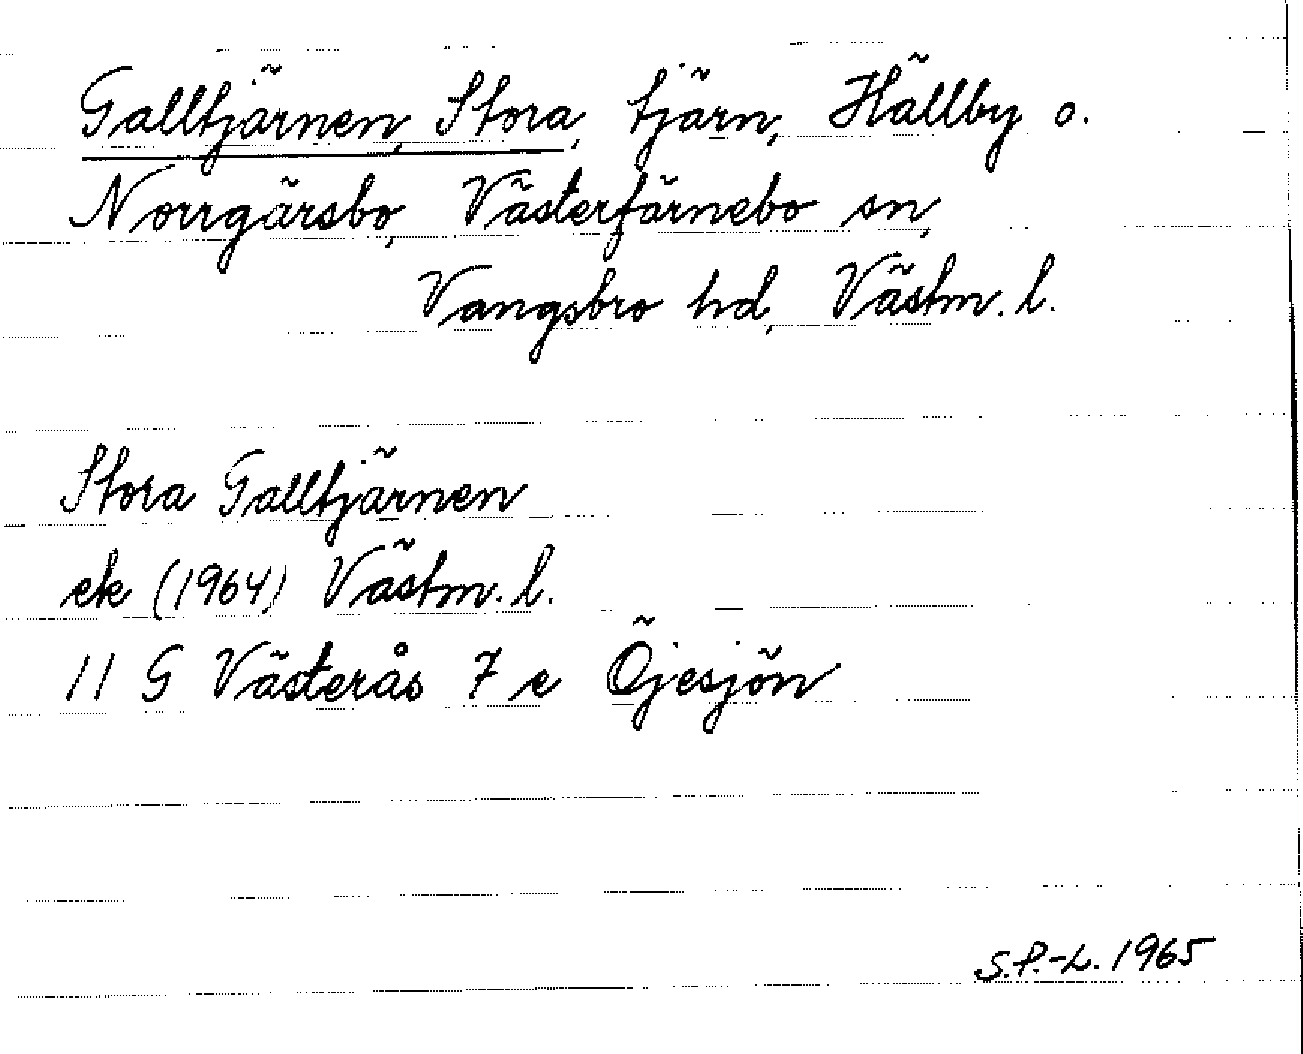 Galltjärnen, Stora, tjärn, Hällby o.
Norrgärsbo, Västerfärnebo sn,
Vangsbro hd, Västm. l.
Stora Galltjärnen
ek (1964) Västm. l.
11 G Västerås 7 e Öjesjön
S.P.-L. 1965